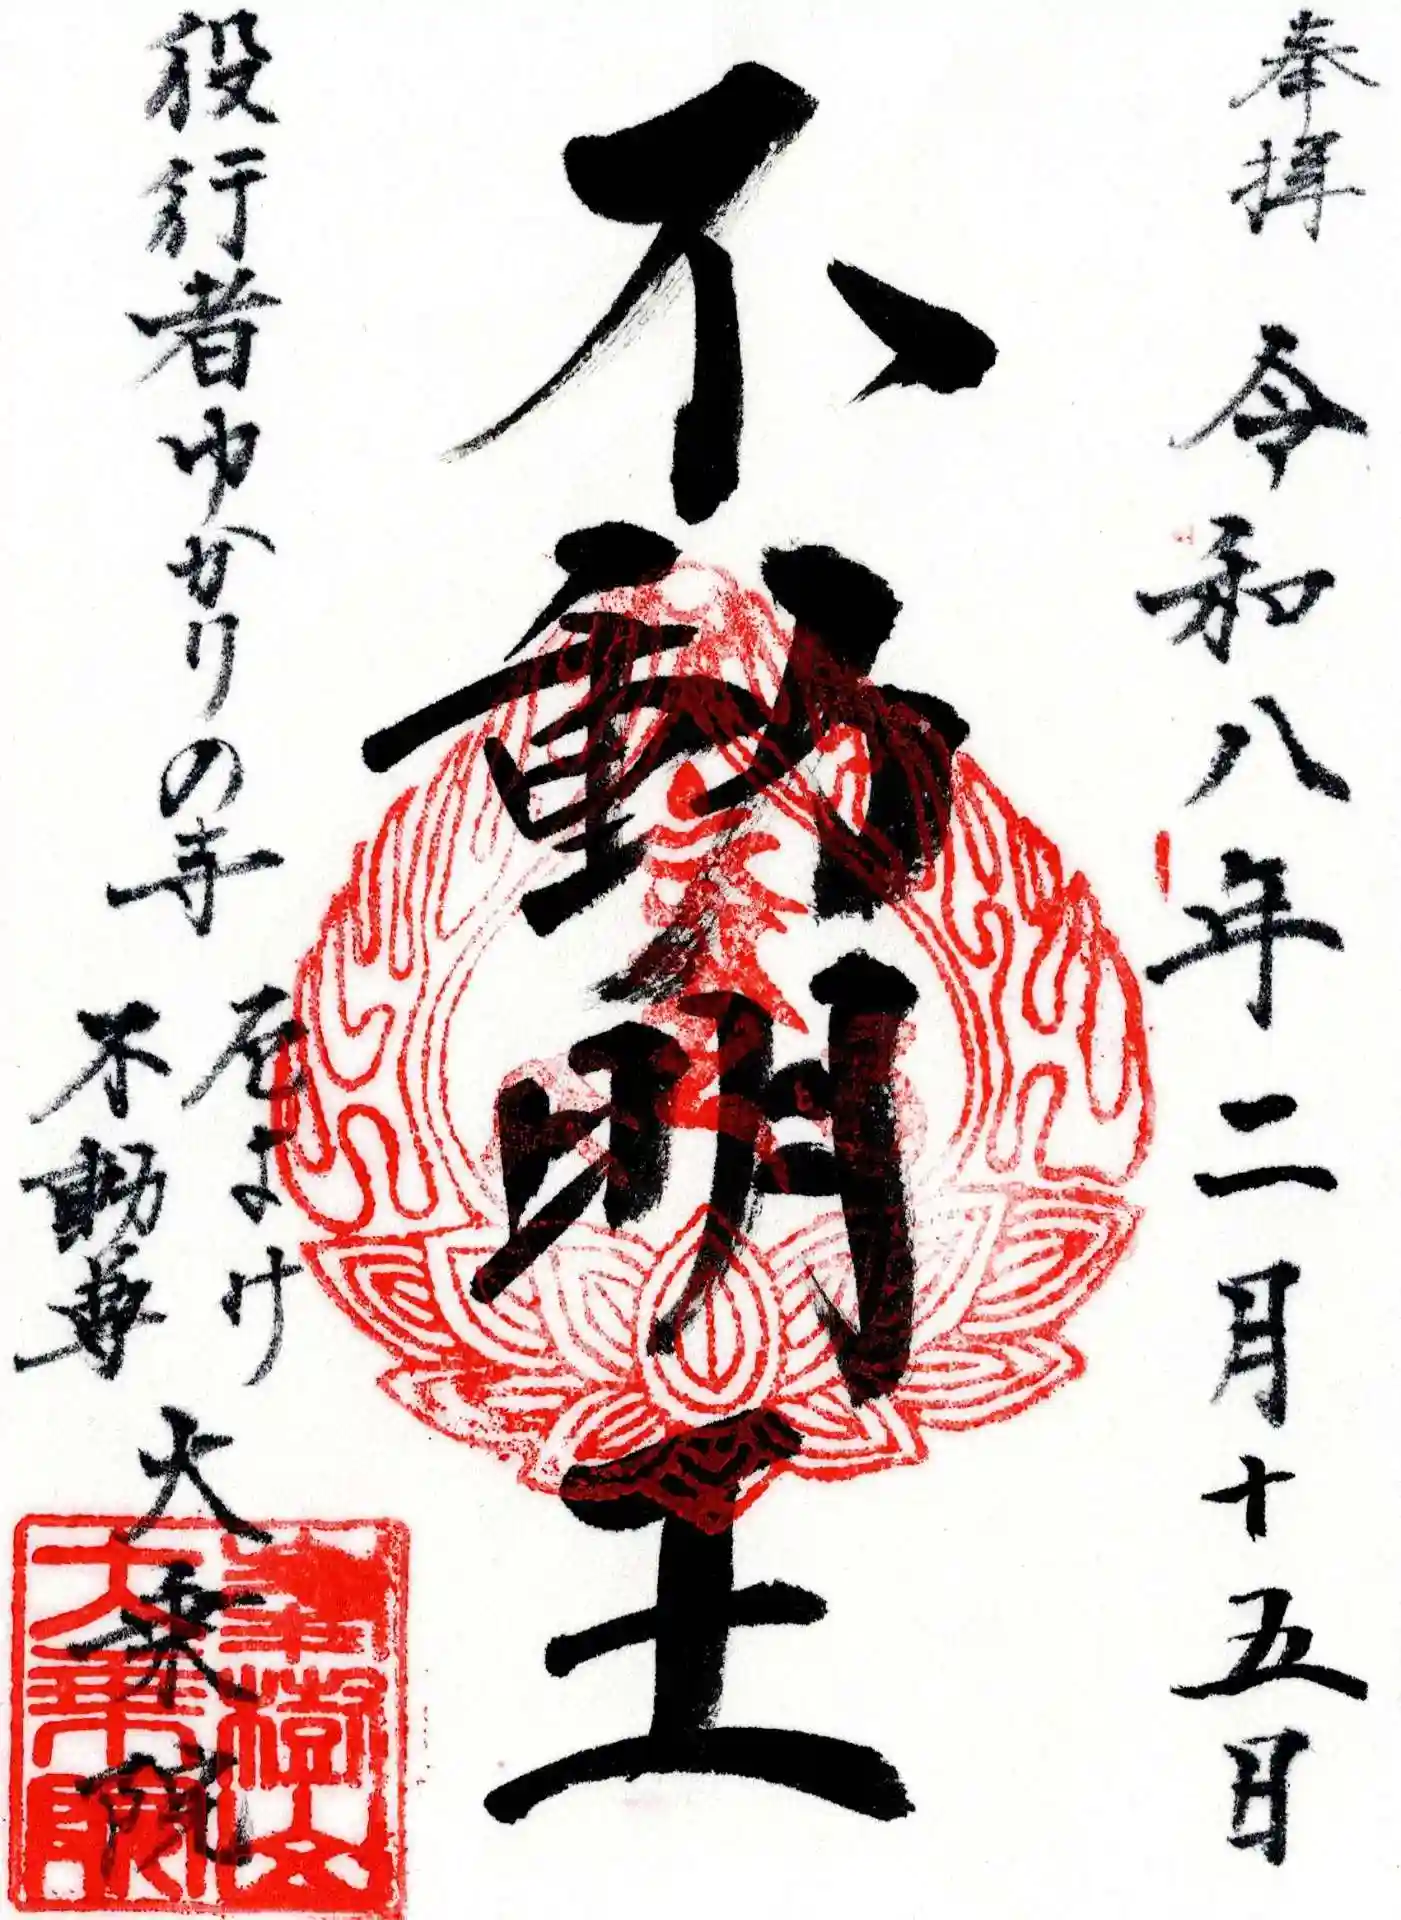 奉拝 令和八年二月十五日
不動明王
役行者ゆかりの寺
厄よけ
不動尊
大乗院
大乗院